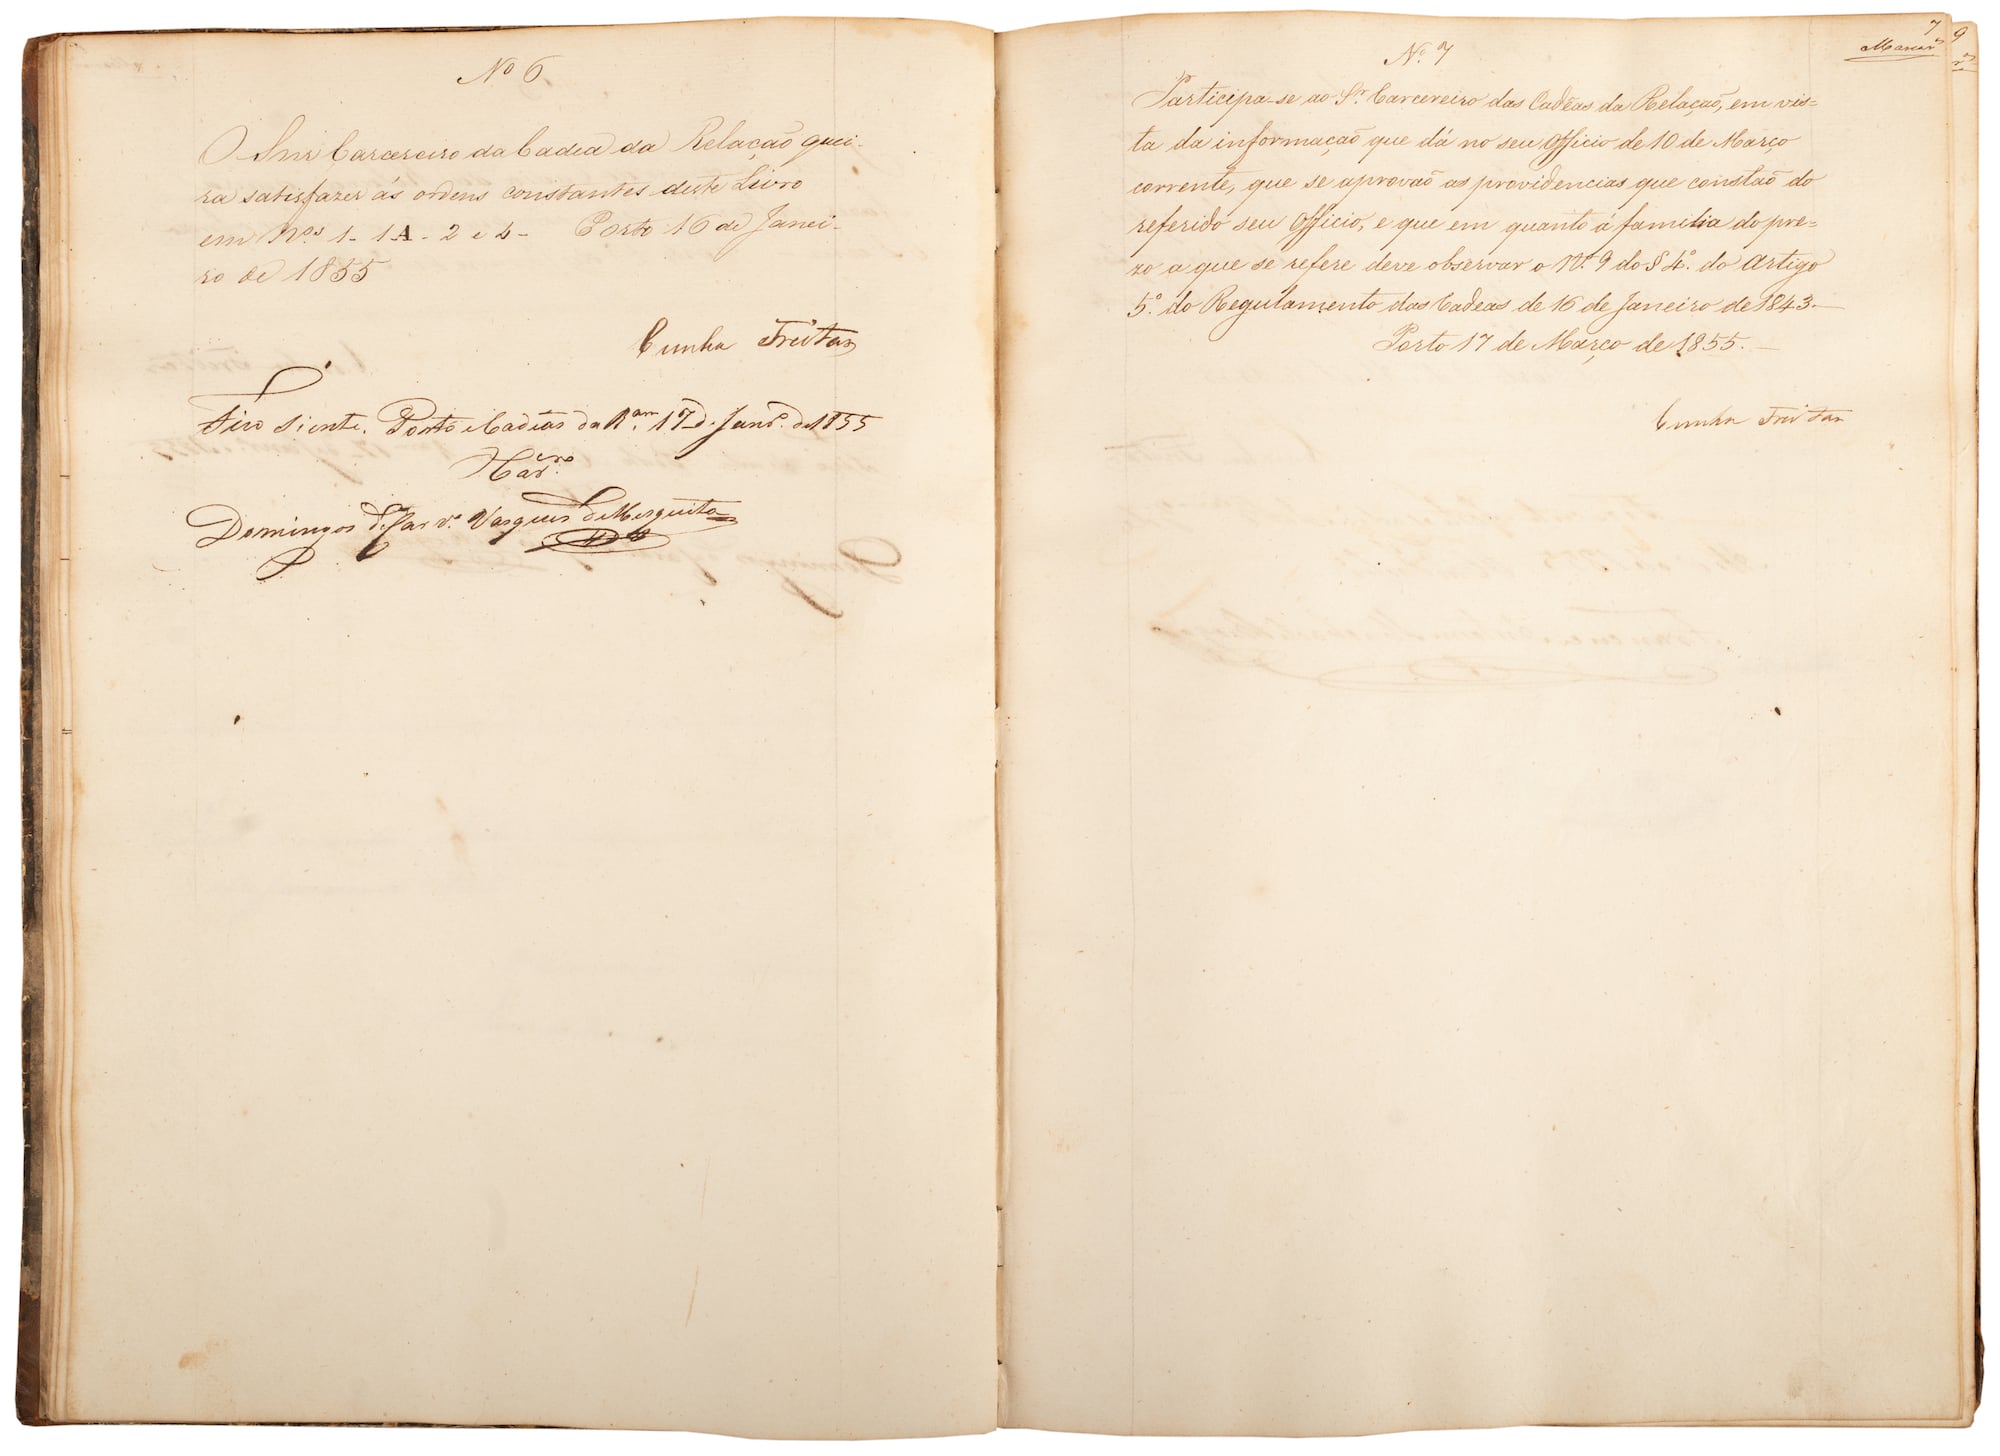 No 6
O Snr Carcereiro da Cadea da Relação quei-
ra satisfazer ás ordens constantes deste Livro
em Nos 1- 1A- 2 e 4- Porto 16 de Janei-
ro de 1855
Cunha Freitas
Fico siente. Porto e Cadeas da Ram. 17 de Janro. de 1855
Domingos de Carvo. Vasques de Mesquita
7
No. 7
Participa-se ao Sr. Carcereiro das Cadêas da Relação, em vis-
ta da informação que dá no seu Officio de 10 de Março
corrente, que se aprovaõ as providencias que constaõ do
referido seu Officio, e que em quanto á familia do pre-
zo a que se refere deve observar o No. 9 do § 4o. do Artigo
5o. do Regulamento das Cadeas de 16 de Janeiro de 1843.—
Porto 17 de Março de 1855.—
Cunha Freitas
9